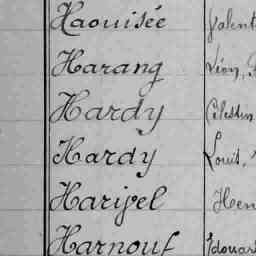 Haouisée Valent
Harang Léon,
Hardy Célestin
Hardy Louis,
Haripel Hen
Harnouf Edouar